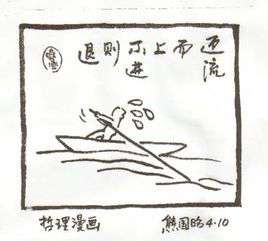 逆流而上不进则退
哲理漫画
4.10